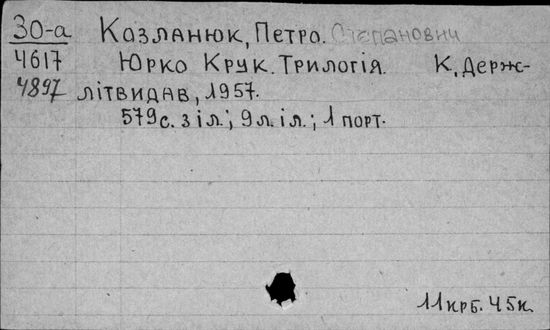 30-а Козланюк, Петро. Степанович
4617 Юрко Крук. Трилогія. К, Держ-
4897 літвидав, 1957.
579с. з іл.; 9 л. іл.; 1 порт.
11крб. 45к.